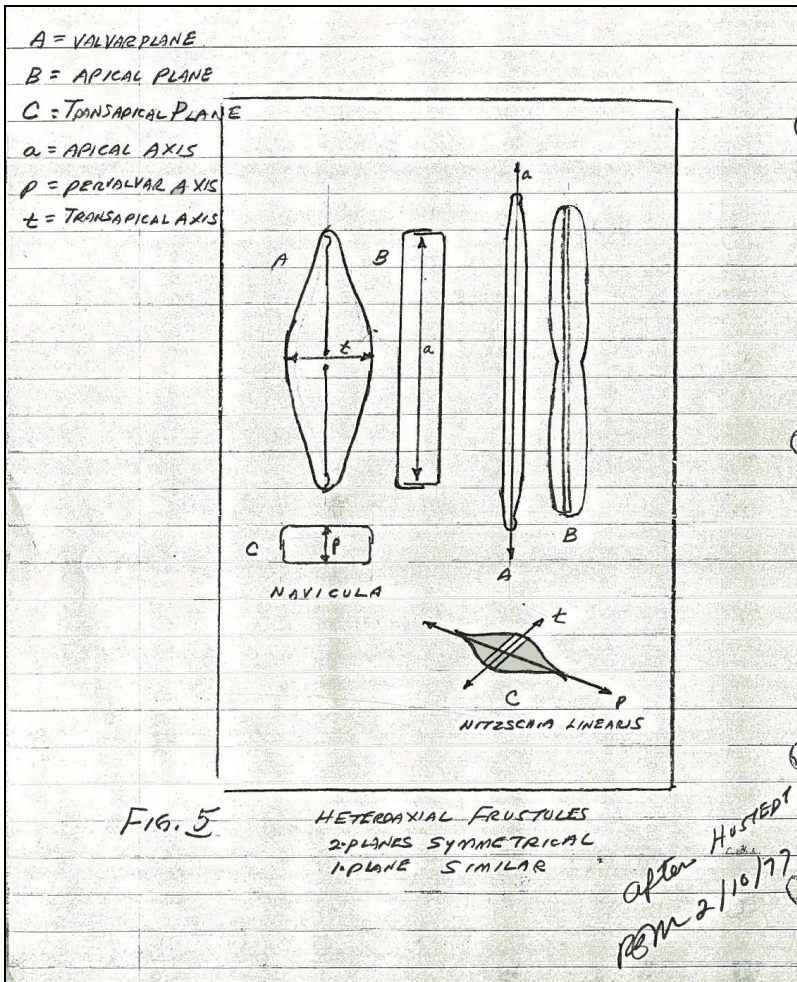 A = VALVAR PLANE
B = APICAL PLANE
C = TRANSAPICAL PLANE
a = APICAL AXIS
p = PERVALVAR AXIS
t = TRANSAPICAL AXIS
a
A
B
t
a
B
C
p
A
NAVICULA
t
C
p
NITZSCHIA LINEARIS
FIG. 5
HETEROAXIAL FRUSTULES
2-PLANES SYMMETRICAL
1-PLANE SIMILAR
after HUSTEDT
2/10/77